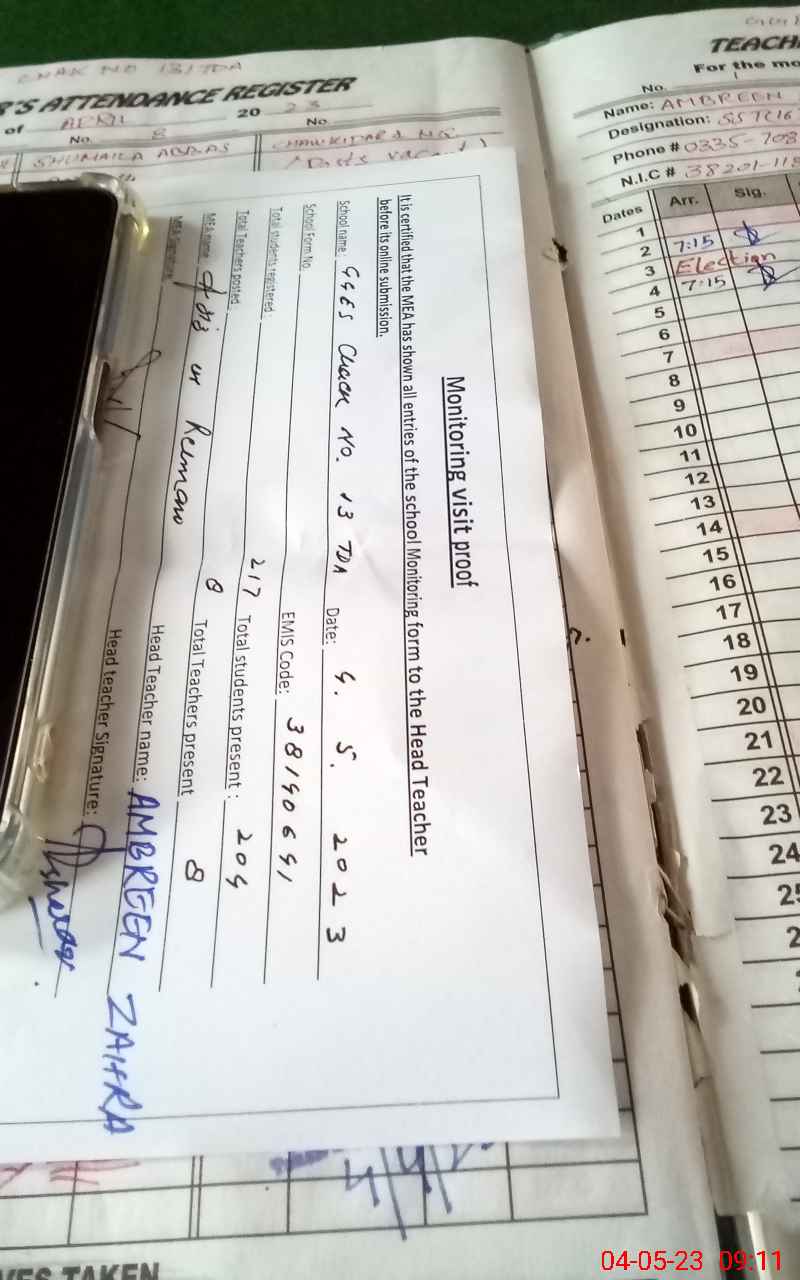 CHAK NO 131TDA
R'S ATTENDANCE REGISTER
of APRIL 20 23
No. 8 No.
SHUMAILA ABBAS
Monitoring visit proof
It is certified that the MEA has shown all entries of the school Monitoring form to the Head Teacher
before its online submission.
School name: GGES Chack No. 13 TDA Date: 4. 5. 2023
School Form No. EMIS Code: 38190691
Total students registered: 217 Total students present: 204
Total Teachers posted: 8 Total Teachers present 8
MEA name Head Teacher name: AMBREEN ZAHRA
MEA Signature: Head teacher Signature:
VES TAKEN
TEACH
For the mo
No.
Name: AMBREEN
Designation: SST(16
Phone # 0335-708
N.I.C # 38201-118
Dates Arr. Sig.
1
2 7:15
3 Election
4 7:15
5
6
7
8
9
10
11
12
13
14
15
16
17
18
19
20
21
22
23
24
04-05-23 09:11